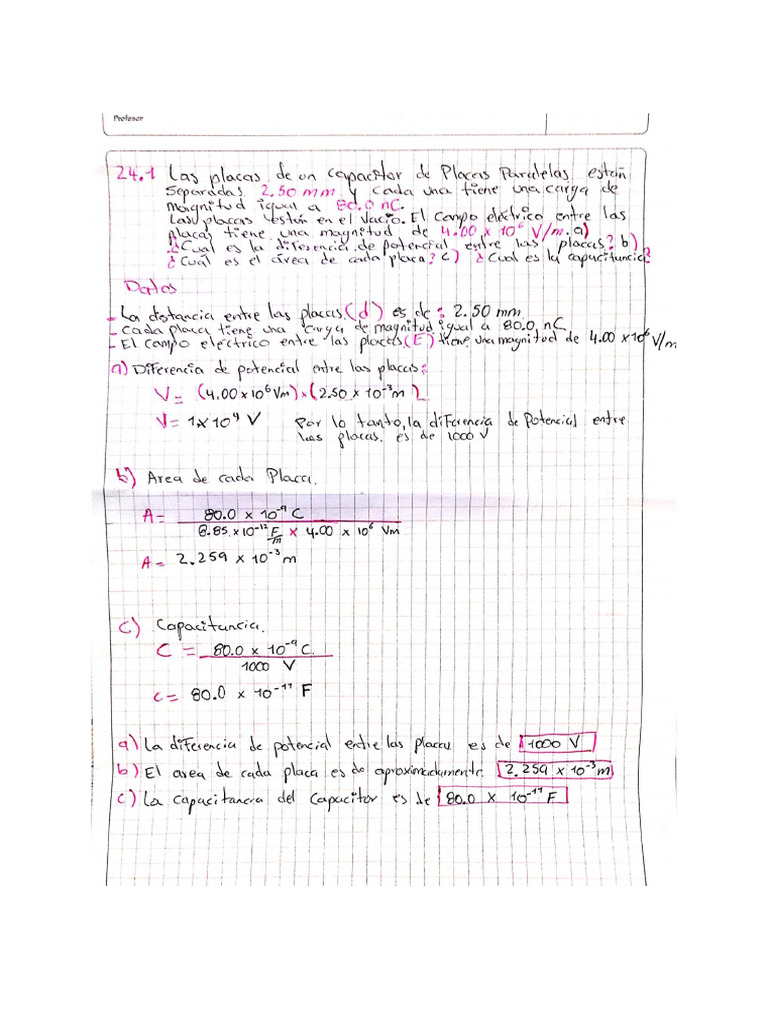 Profesor
24.1 Las placas de un capacitor de Placas Paralelas están
separadas 2.50 mm y cada una tiene una carga de
magnitud igual a 80.0 nC.
Las placas están en el vacio. El campo eléctrico entre las
placas tiene una magnitud de 4.00 x 10⁶ V/m. a)
¿Cual es la diferencia de potencial entre las placas? b)
¿Cuál es el área de cada placa? c) ¿Cual es la capacitancia?
Datos
- La distancia entre las placas (d) es de: 2.50 mm
- Cada placa tiene una carga de magnitud igual a 80.0 nC
- El campo eléctrico entre las placas (E) tiene una magnitud de 4.00 x10⁶ V/m
a) Diferencia de potencial entre las placas:
V= (4.00 x 10⁶ Vm) x (2.50 x 10⁻³ m)
V= 1x10⁴ V Por lo tanto, la diferencia de Potencial entre
las placas. es de 1000 V
b) Area de cada Placa.
A= 80.0 x 10⁻⁹ C
8.85 x 10⁻¹² F/m x 4.00 x 10⁶ Vm
A= 2.259 x 10⁻³ m
c) Capacitancia.
C = 80.0 x 10⁻⁹ C.
1000 V
c= 80.0 x 10⁻¹¹ F
a) La diferencia de potencial entre las placas es de 1000 V
b) El area de cada placa es de aproximadamente 2.259 x 10⁻³ m
c) La capacitancia del Capacitor es de 80.0 x 10⁻¹¹ F